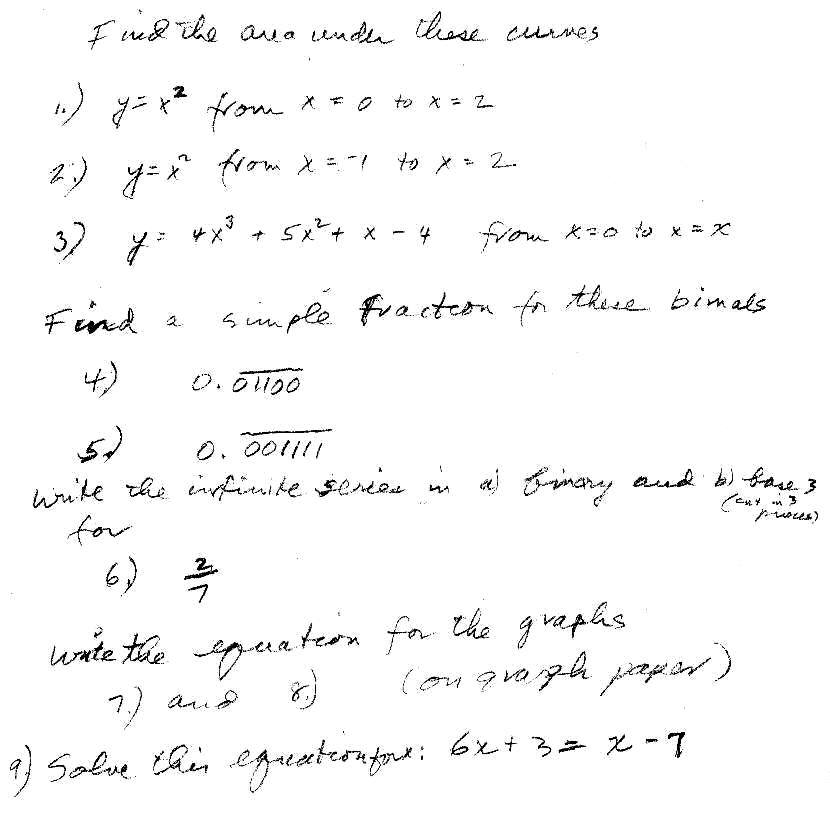 Find the area under these curves
1.) y = x² from x = 0 to x = 2
2.) y = x² from x = -1 to x = 2
3) y = 4x³ + 5x² + x - 4 from x=0 to x = x
Find a simple fraction for these bimals
4) 0.0̅1̅1̅0̅0̅
5) 0.0̅0̅1̅1̅1̅1̅
Write the infinite series in a) binary and b) base 3
(cut in 3
pieces)
for
6) 2/7
Write the equation for the graphs
7.) and 8.) (on graph paper)
9) Solve this equation for x: 6x + 3 = x - 7